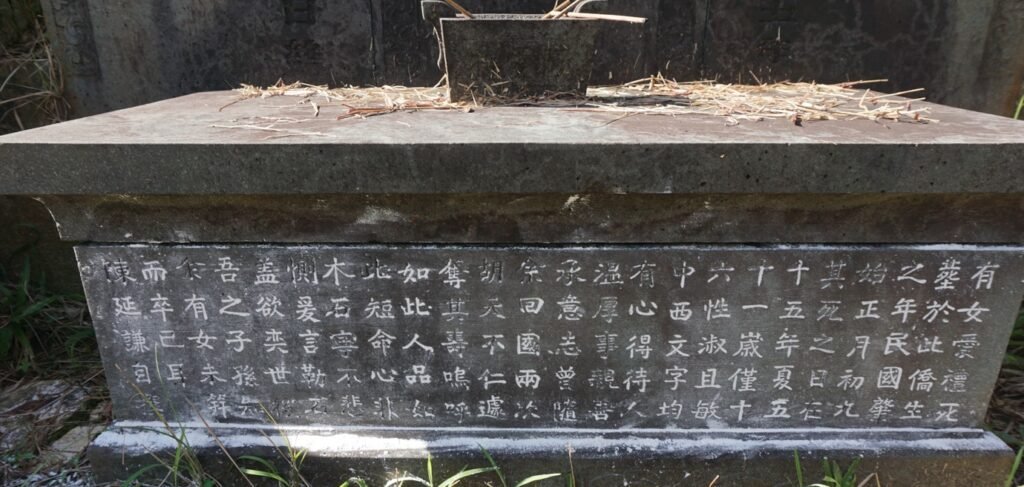 有女愛禮死
葬於此僑生
之年民國肇
始正月初九
其死之日在
十五年夏五
十一歲僅十
六性淑且敏
中西文字均
有心得待人
溫厚事親善
承意志曾隨
余回國兩次
胡天不仁遽
奪其壽嗚呼
如此人品如
此短命心非
木石寧不悲
慟爰言勒石
蓋欲奕世
吾之子孫
余有女未笄
而卒已耳
陳延謙自